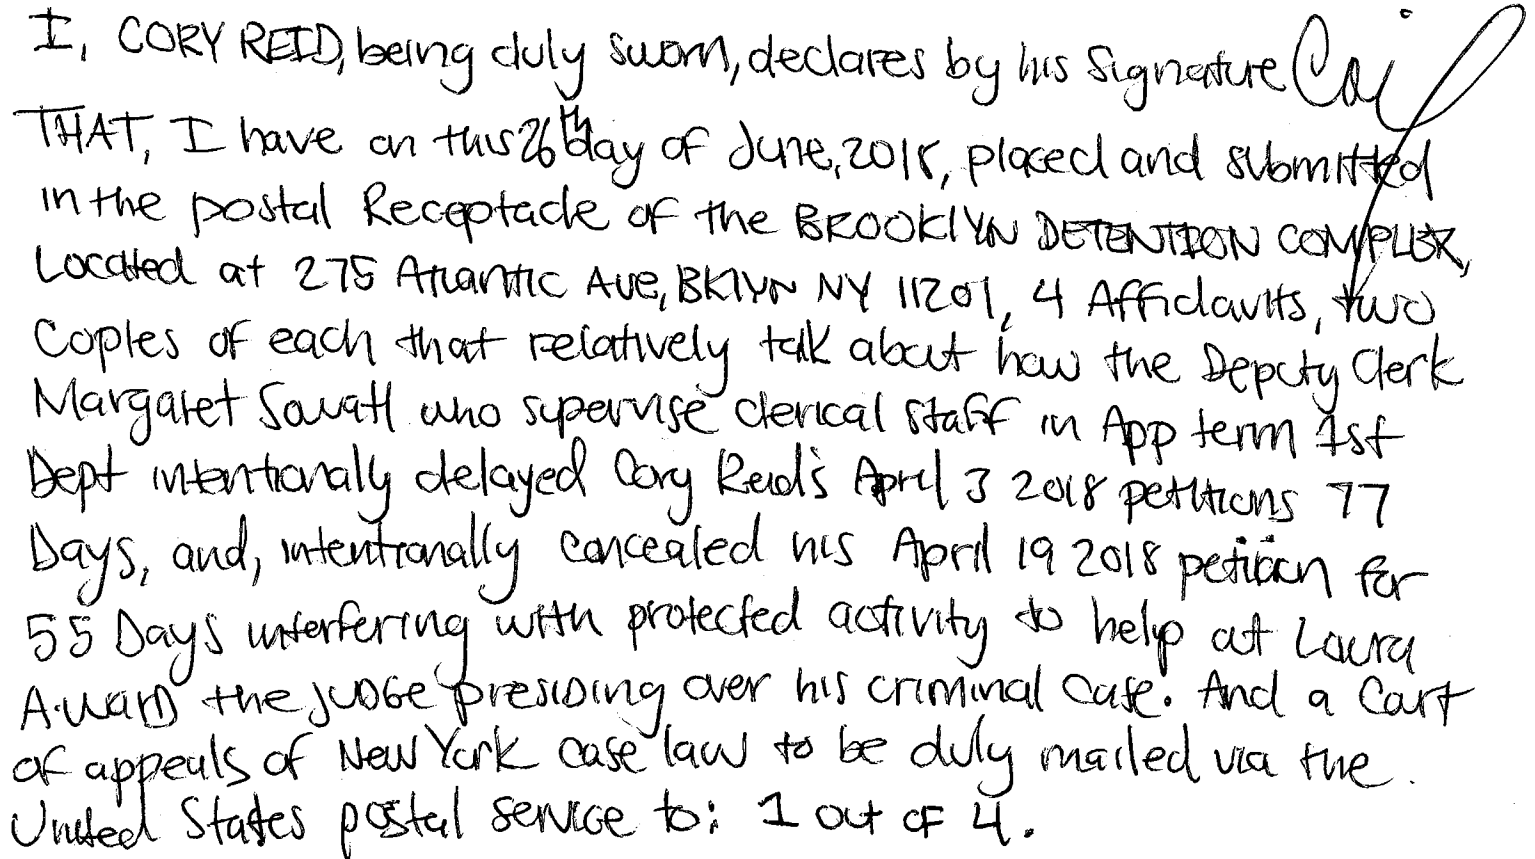 I, CORY REID, being duly sworn, declares by his Signature
THAT, I have on this 26th day of June, 2018, placed and submitted
in the postal Receptacle of the BROOKLYN DETENTION COMPLEX,
Located at 275 Atlantic Ave, BKlYN NY 11201, 4 Affidavits, two
Copies of each that relatively talk about how the Deputy Clerk
Margaret who supervise clerical staff in App term 1st
Dept intentionally delayed Cory Reid's April 3 2018 petitions 77
Days, and, intentionally concealed his April 19 2018 petition for
55 Days interfering with protected activity to help at Laura
A. Ward the JUDGE presiding over his criminal case. And a Court
of appeals of New York case law to be duly mailed via the
United States postal service to: 1 out of 4.